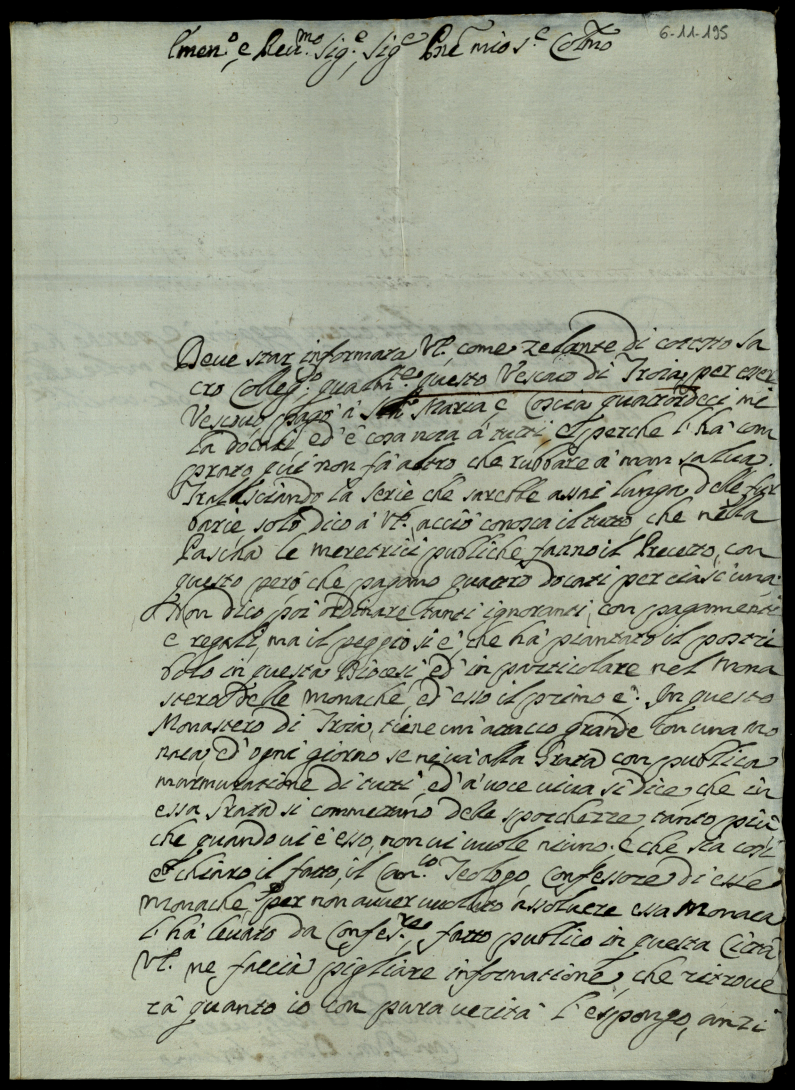 6-11-195
Emen.o, e Reu.mo Sig.e, Sig.e Pne mio S.e Colmo
Deue star informata VE. come zelante di cotesto sa
cro Colleg.o, qualm.te questo Vescouo di Troia, per esser
Vescouo pagò à Maria e Coscia quattordeci mi
la docati ed' è cosa nota à tutti, e perche l'hà com
prato qui non fà altro che rubbare à man salua.
Tralasciando la serie che sarebbe assai lunga delle fur
barie solo dico à VE. acciò conosca il tutto, che nella
Pascha le meretrici publiche fanno il Precetto, con
questo però che pagano quattro docati per ciascuna.
Non dico poi ordinare tanti ignoranti, con pagamenti
e regali, ma il peggio si è, che hà piantato il postri
bolo in questa Diocesi ed' in particolare nel Mona
stero delle monache, ed' esso il primo è. In questo
Monastero di Troia, tiene un' attacco grande con una mo
naca, ed' ogni giorno se ne và alla Grata con publica
mormuratione di tutti ed' a' uoce uiua si dice, che in
essa Grata si commettano delle sporchezze, tanto più
che quando ui è esso, non ui uuole niuno. E che sia così
è chiaro il fatto, il Can.co Teologo Confessore di esse
monache, per non auer uoluto assoluere essa Monaca
l' hà leuato da Confes.re, fatto publico in questa Città
VE. ne faccia pigliare informatione, che ritroue
rà quanto io con pura uerità l' espongo, anzi